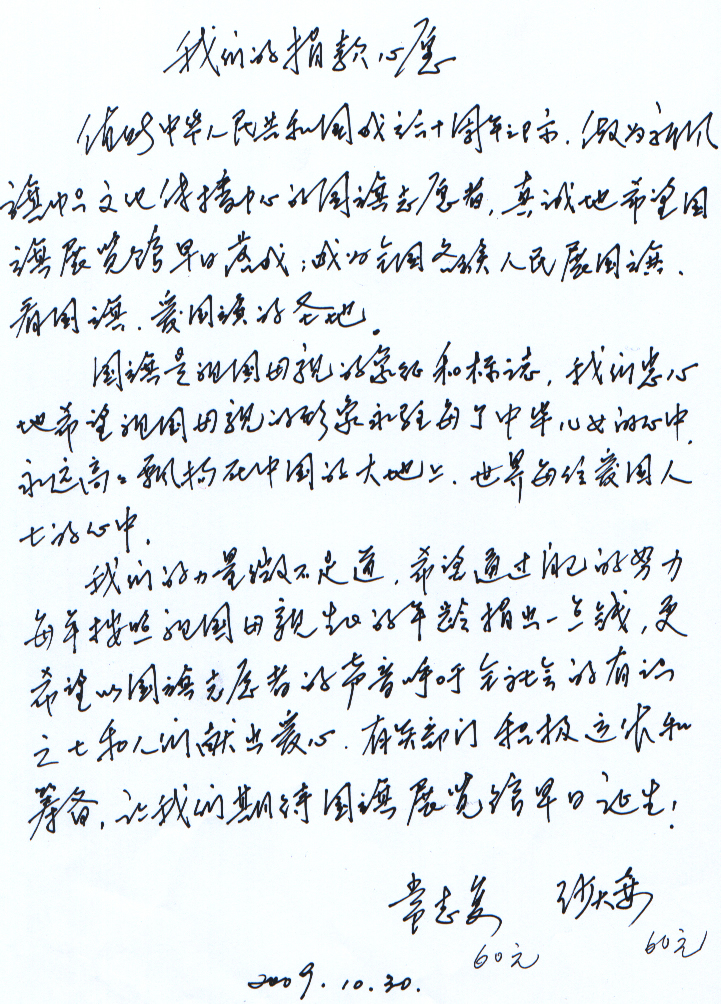 我们的捐款心愿
值此中华人民共和国成立六十周年之际，做为
旗中只文化传播中心的国旗志愿者，真诚地希望国
旗展览馆早日落成；成为全国各族人民展国旗、
看国旗、爱国旗的圣地。
国旗是祖国母亲的象征和标志，我们忠心
地希望祖国母亲的形象永驻每个中华儿女的心中，
永远高高飘扬在中国的大地上、世界每位爱国人
士的心中。
我们的力量微不足道，希望通过自己的努力
每年按照祖国母亲的年龄捐出一点钱，更
希望以国旗志愿者的声音呼吁全社会的有识
之士和人们献出爱心，有关部门积极宣传和
筹备，让我们期待国旗展览馆早日诞生！
常志
60元 60元
2009.10.30.